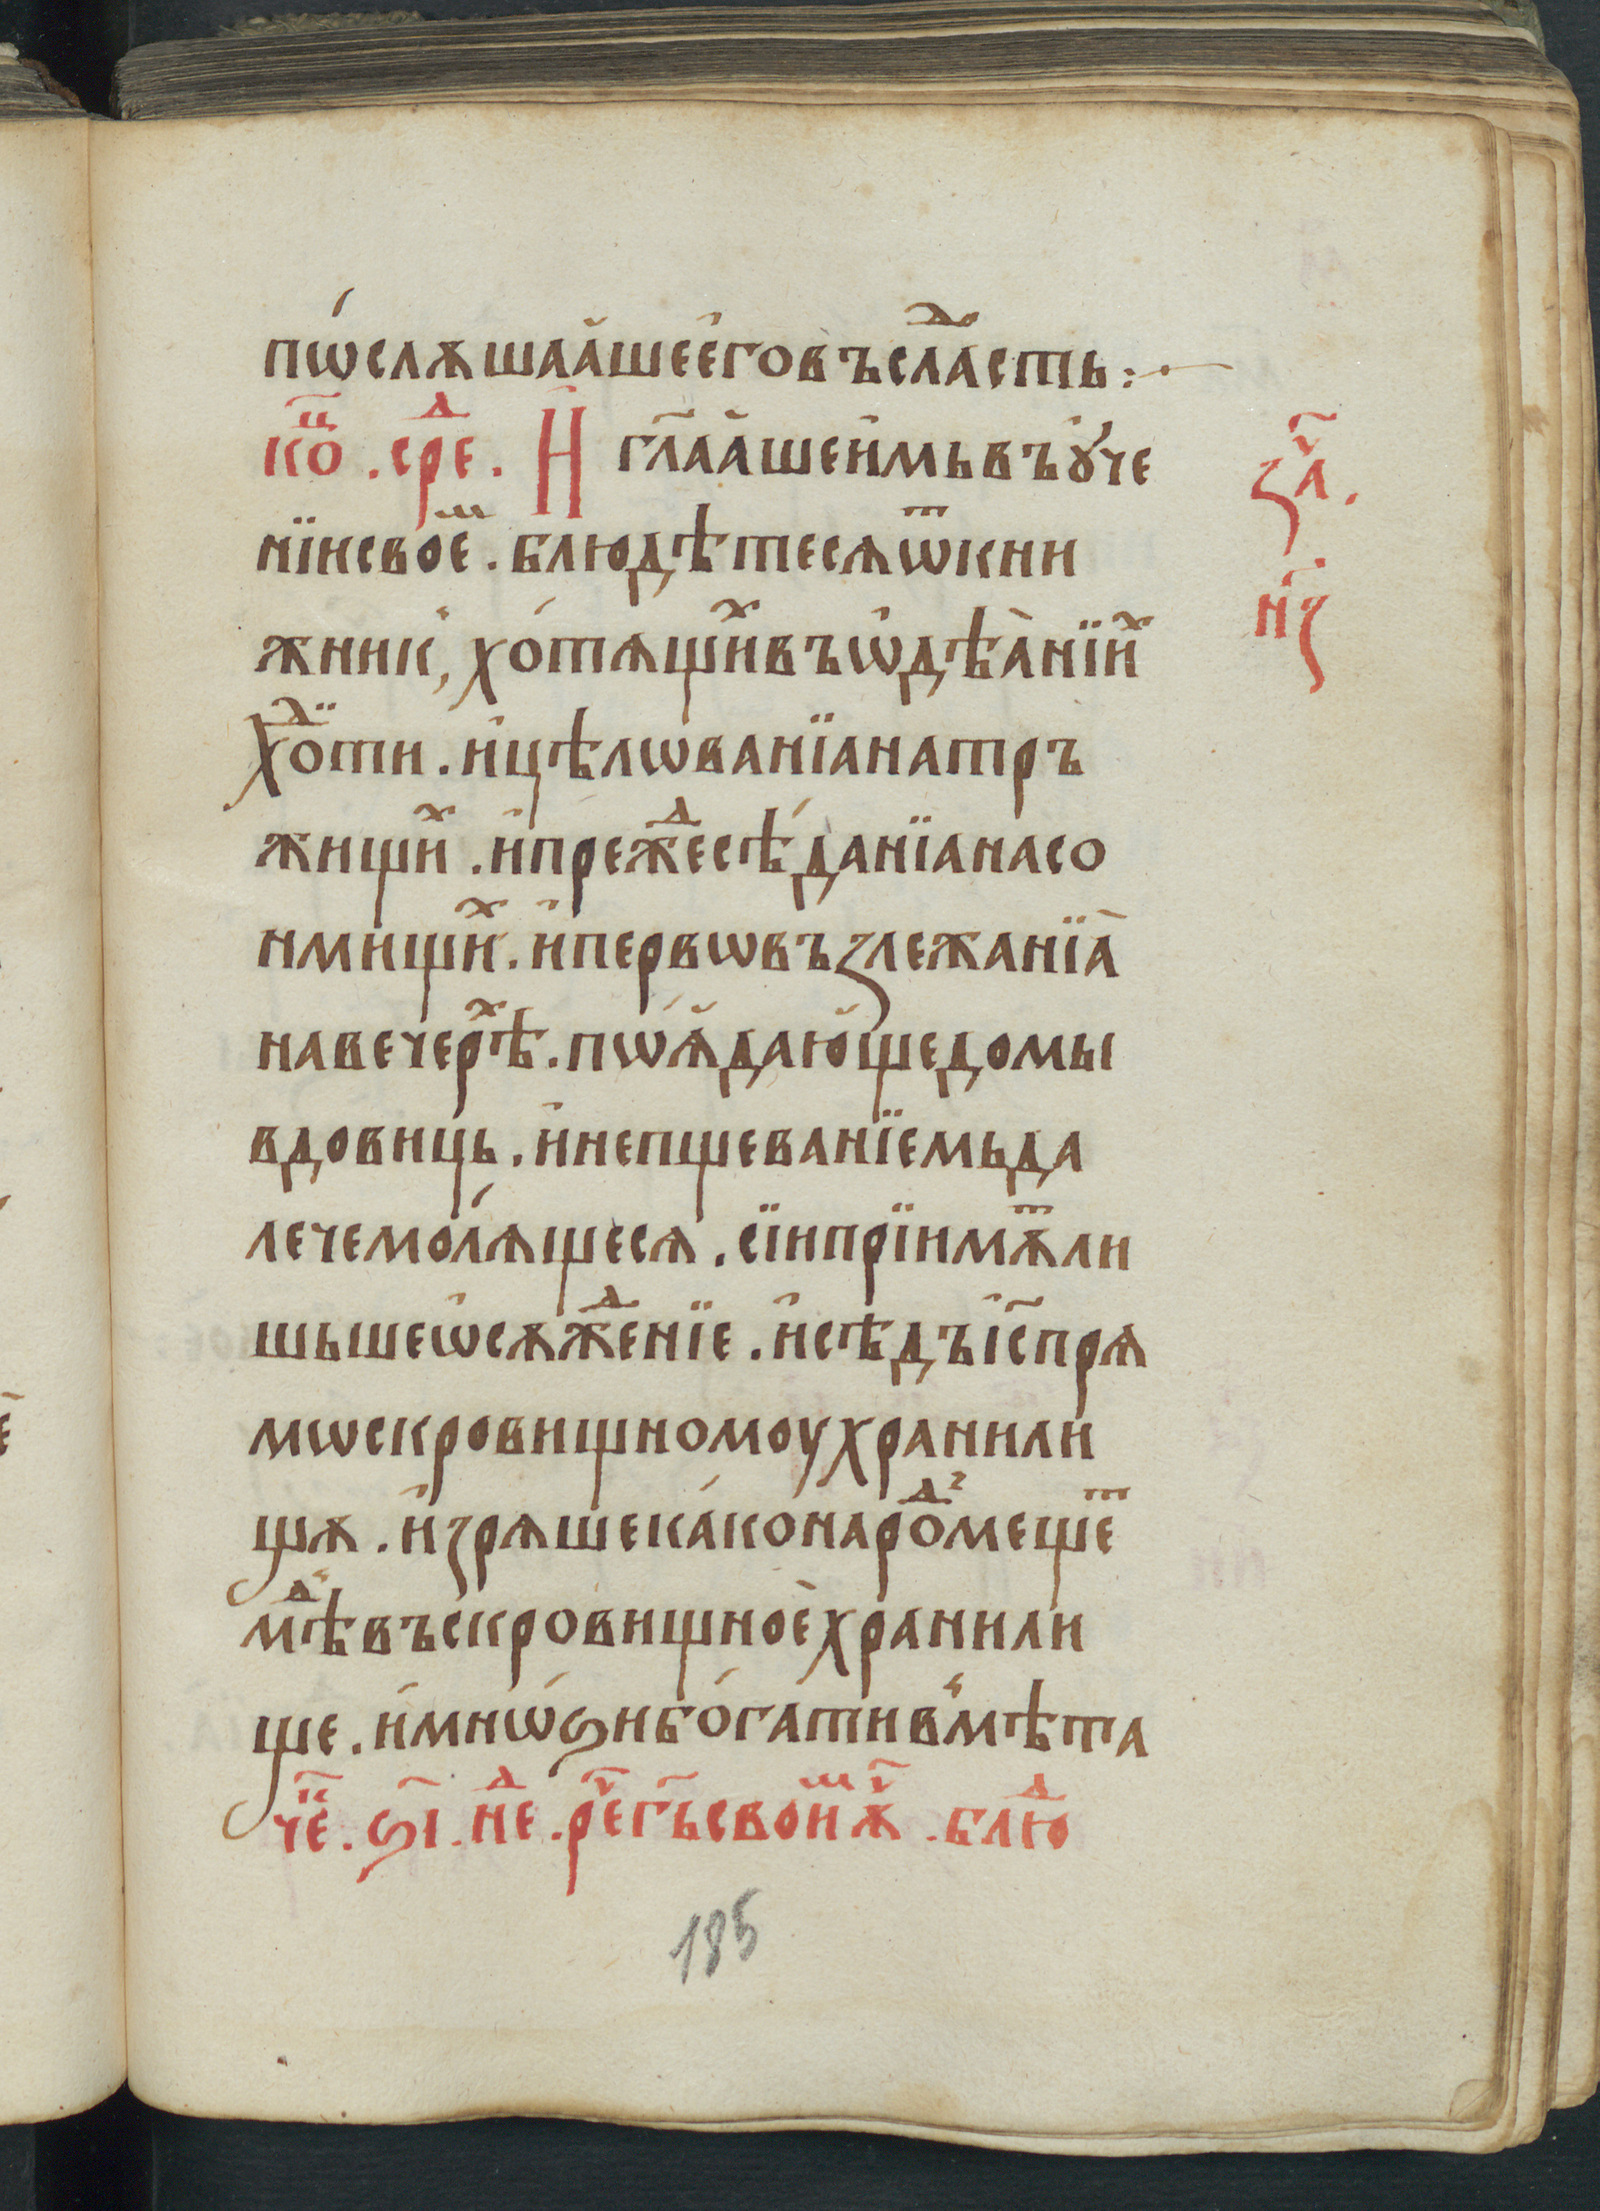 пѡ́слѫшаа҆шеєг҆овъслⷣасть :·
кⷰ҇о . срⷣе . И гл҃аа҆шеи҆мьвъꙋ҆че
нїисвоеⷨ . блюдѣтесѧѿкни
жник, хо́тѧщиⷯвъѡ҆дѣа̀нїиⷯ
хоⷣти . и҆цѣлѡванїанатръ
жищиⷯ . и҆прежⷣесѣ́данїанасо
нмищиⷯ . и҆первѡвъꙁлежанїа̀
навечерⷯѣ . пѡѧ҆́дающедомы
вдовиць . и҆непщеванїемьда
лечемолѧ́щесѧ . сїипрїимѧⷮли
шьшеѡ҆сѫжⷣенїе . и҆сѣдъі҆с҃прѧ
мѡскровищномоухранили
щѫ . и҆ꙁрѧшека́ко́нароⷣмещеⷮ
мѣⷣвъскровищноèхранили
ще . и҆мнѡ́ѕибо́га́тивъмѣта
чеⷰ҇ . ѕ҃і . неⷣ . рⷱ҇егь҃свои҆ⷨѫⷱ҇ . блюⷣ
ꙁаⷱ҇ .
н҃ꙁ
185